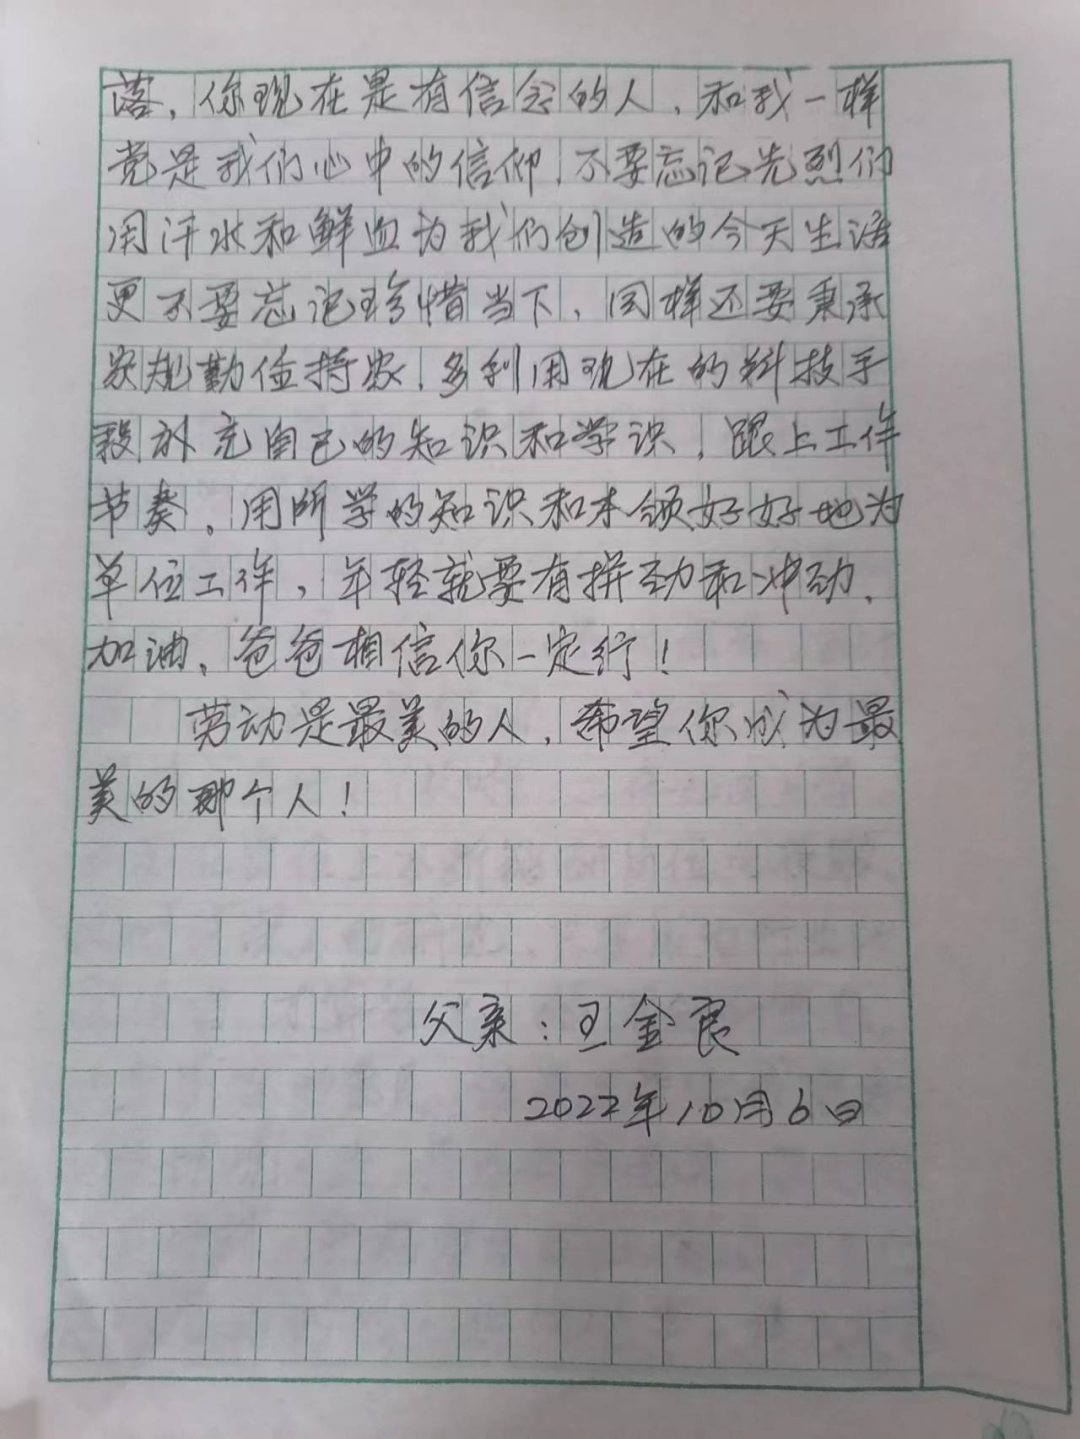 落，你现在是有信念的人，和我一样
党是我们心中的信仰，不要忘记先烈们
用汗水和鲜血为我们创造的今天生活
更不要忘记珍惜当下，同样还要秉承
家规勤俭持家，多利用现在的科技手
段补充自己的知识和学识，跟上工作
节奏。用所学的知识和本领好好地为
单位工作，年轻就要有拼劲和冲劲，
加油，爸爸相信你一定行！
劳动是最美的人，希望你成为最
美的那个人！
父亲：王金良
2022年10月6日